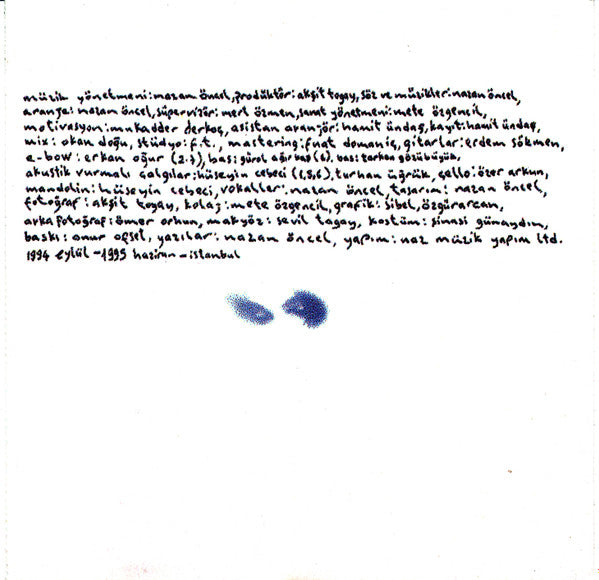 müzik yönetmeni: nazan öncel, prodüktör: akşit togay, söz ve müzikler: nazan öncel,
aranje: nazan öncel, süpervizör: mert özmen, sanat yönetmeni: mete özgencil,
motivasyon: mukadder derkoç, asistan aranjör: hamit ündaş, kayıt: hamit ündaş,
mix: okan doğu, stüdyo: f.t., mastering: fuat domaniç, gitarlar: erdem sökmen,
e-bow: erkan oğur (2.7), bas: gürol ağırbaş (6). bas: serkan gözübüyük,
akustik vurmalı çalgılar: hüseyin cebeci (1,5,6), turhan üğrük, çello: özer arkun,
mandolin: hüseyin cebeci, vokaller: nazan öncel, tasarım: nazan öncel,
fotoğraf: akşit togay, kolaj: mete özgencil, grafik: sibel, özgürarcan,
arka fotoğraf: ömer orhun, makyöz: sevil togay, kostüm: sinasi günaydın,
baskı: onur ofset, yazılar: nazan öncel, yapım: naz müzik yapım ltd.
1994 eylül - 1995 haziran - istanbul